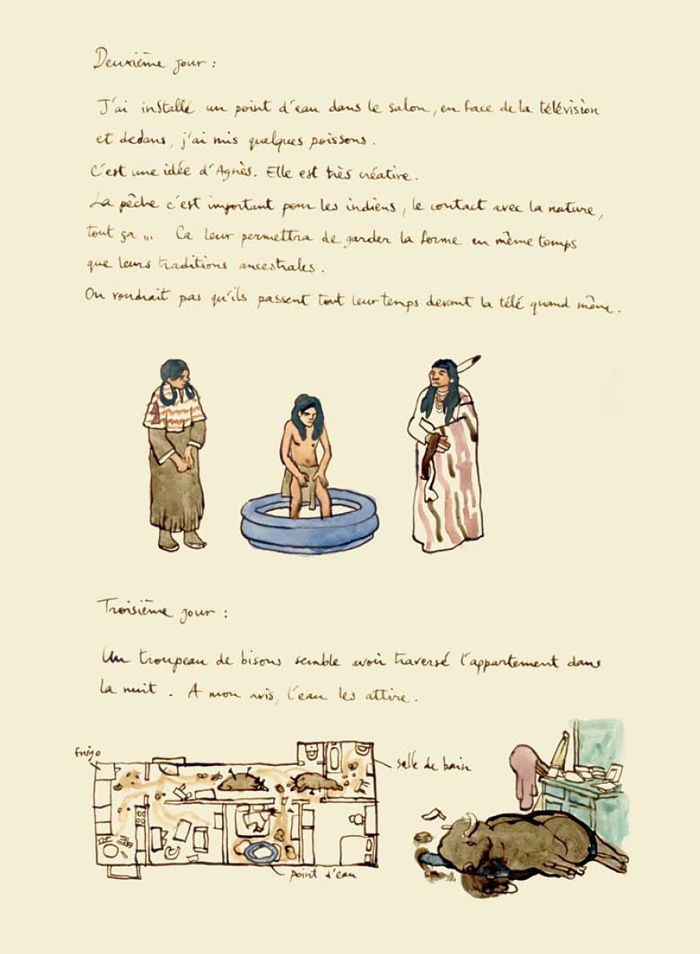 Deuxième jour :
J'ai installé un point d'eau dans le salon, en face de la télévision
et dedans, j'ai mis quelques poissons.
C'est une idée d'Agnès. Elle est très créative.
La pêche c'est important pour les indiens, le contact avec la nature,
tout ça ... Ca leur permettra de garder la forme en même temps
que leurs traditions ancestrales.
On voudrait pas qu'ils passent tout leur temps devant la télé quand même.
Troisième jour :
Un troupeau de bisons semble avoir traversé l'appartement dans
la nuit. A mon avis, l'eau les attire.
frigo
salle de bain
point d'eau